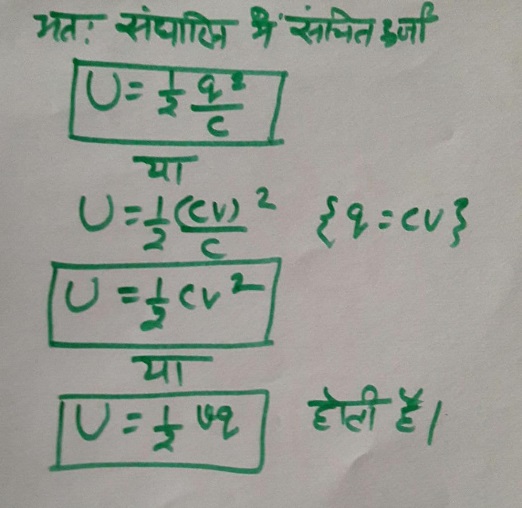 अतः संधारित्र में संचित ऊर्जा
U = 1/2 q²/C
या
U = 1/2 (CV)²/C {q = CV}
U = 1/2 CV²
या
U = 1/2 Vq होती है।